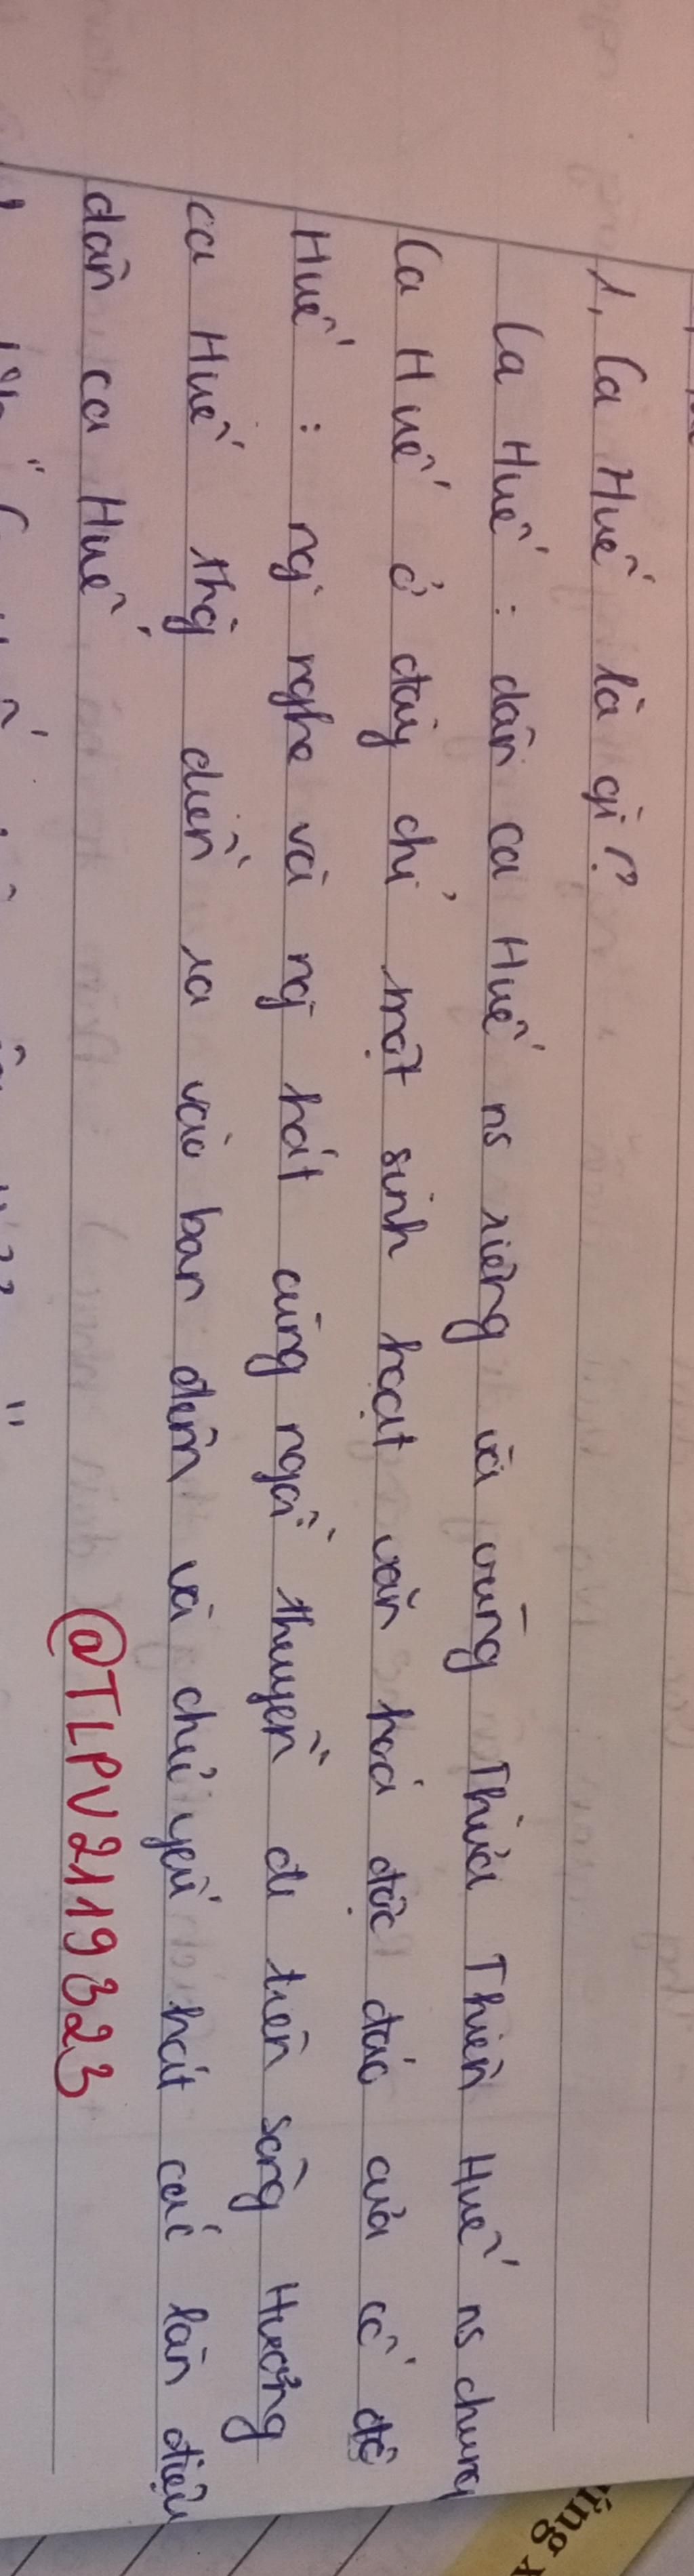 1, Ca Huế là gì?
Ca Huế : dân ca Huế ns riêng và vùng Thừa Thiên Huế ns chung
Ca Huế ở đây chỉ một sinh hoạt văn hoá độc đáo của cố đô
Huế : ng` nghe và ng` hát cùng ngồi thuyền đi trên sông Hương
ca Huế thg` diễn ra vào ban đêm và chủ yếu hát các làn điệu
dân ca Huế.
@TLPV2119323
ứng x